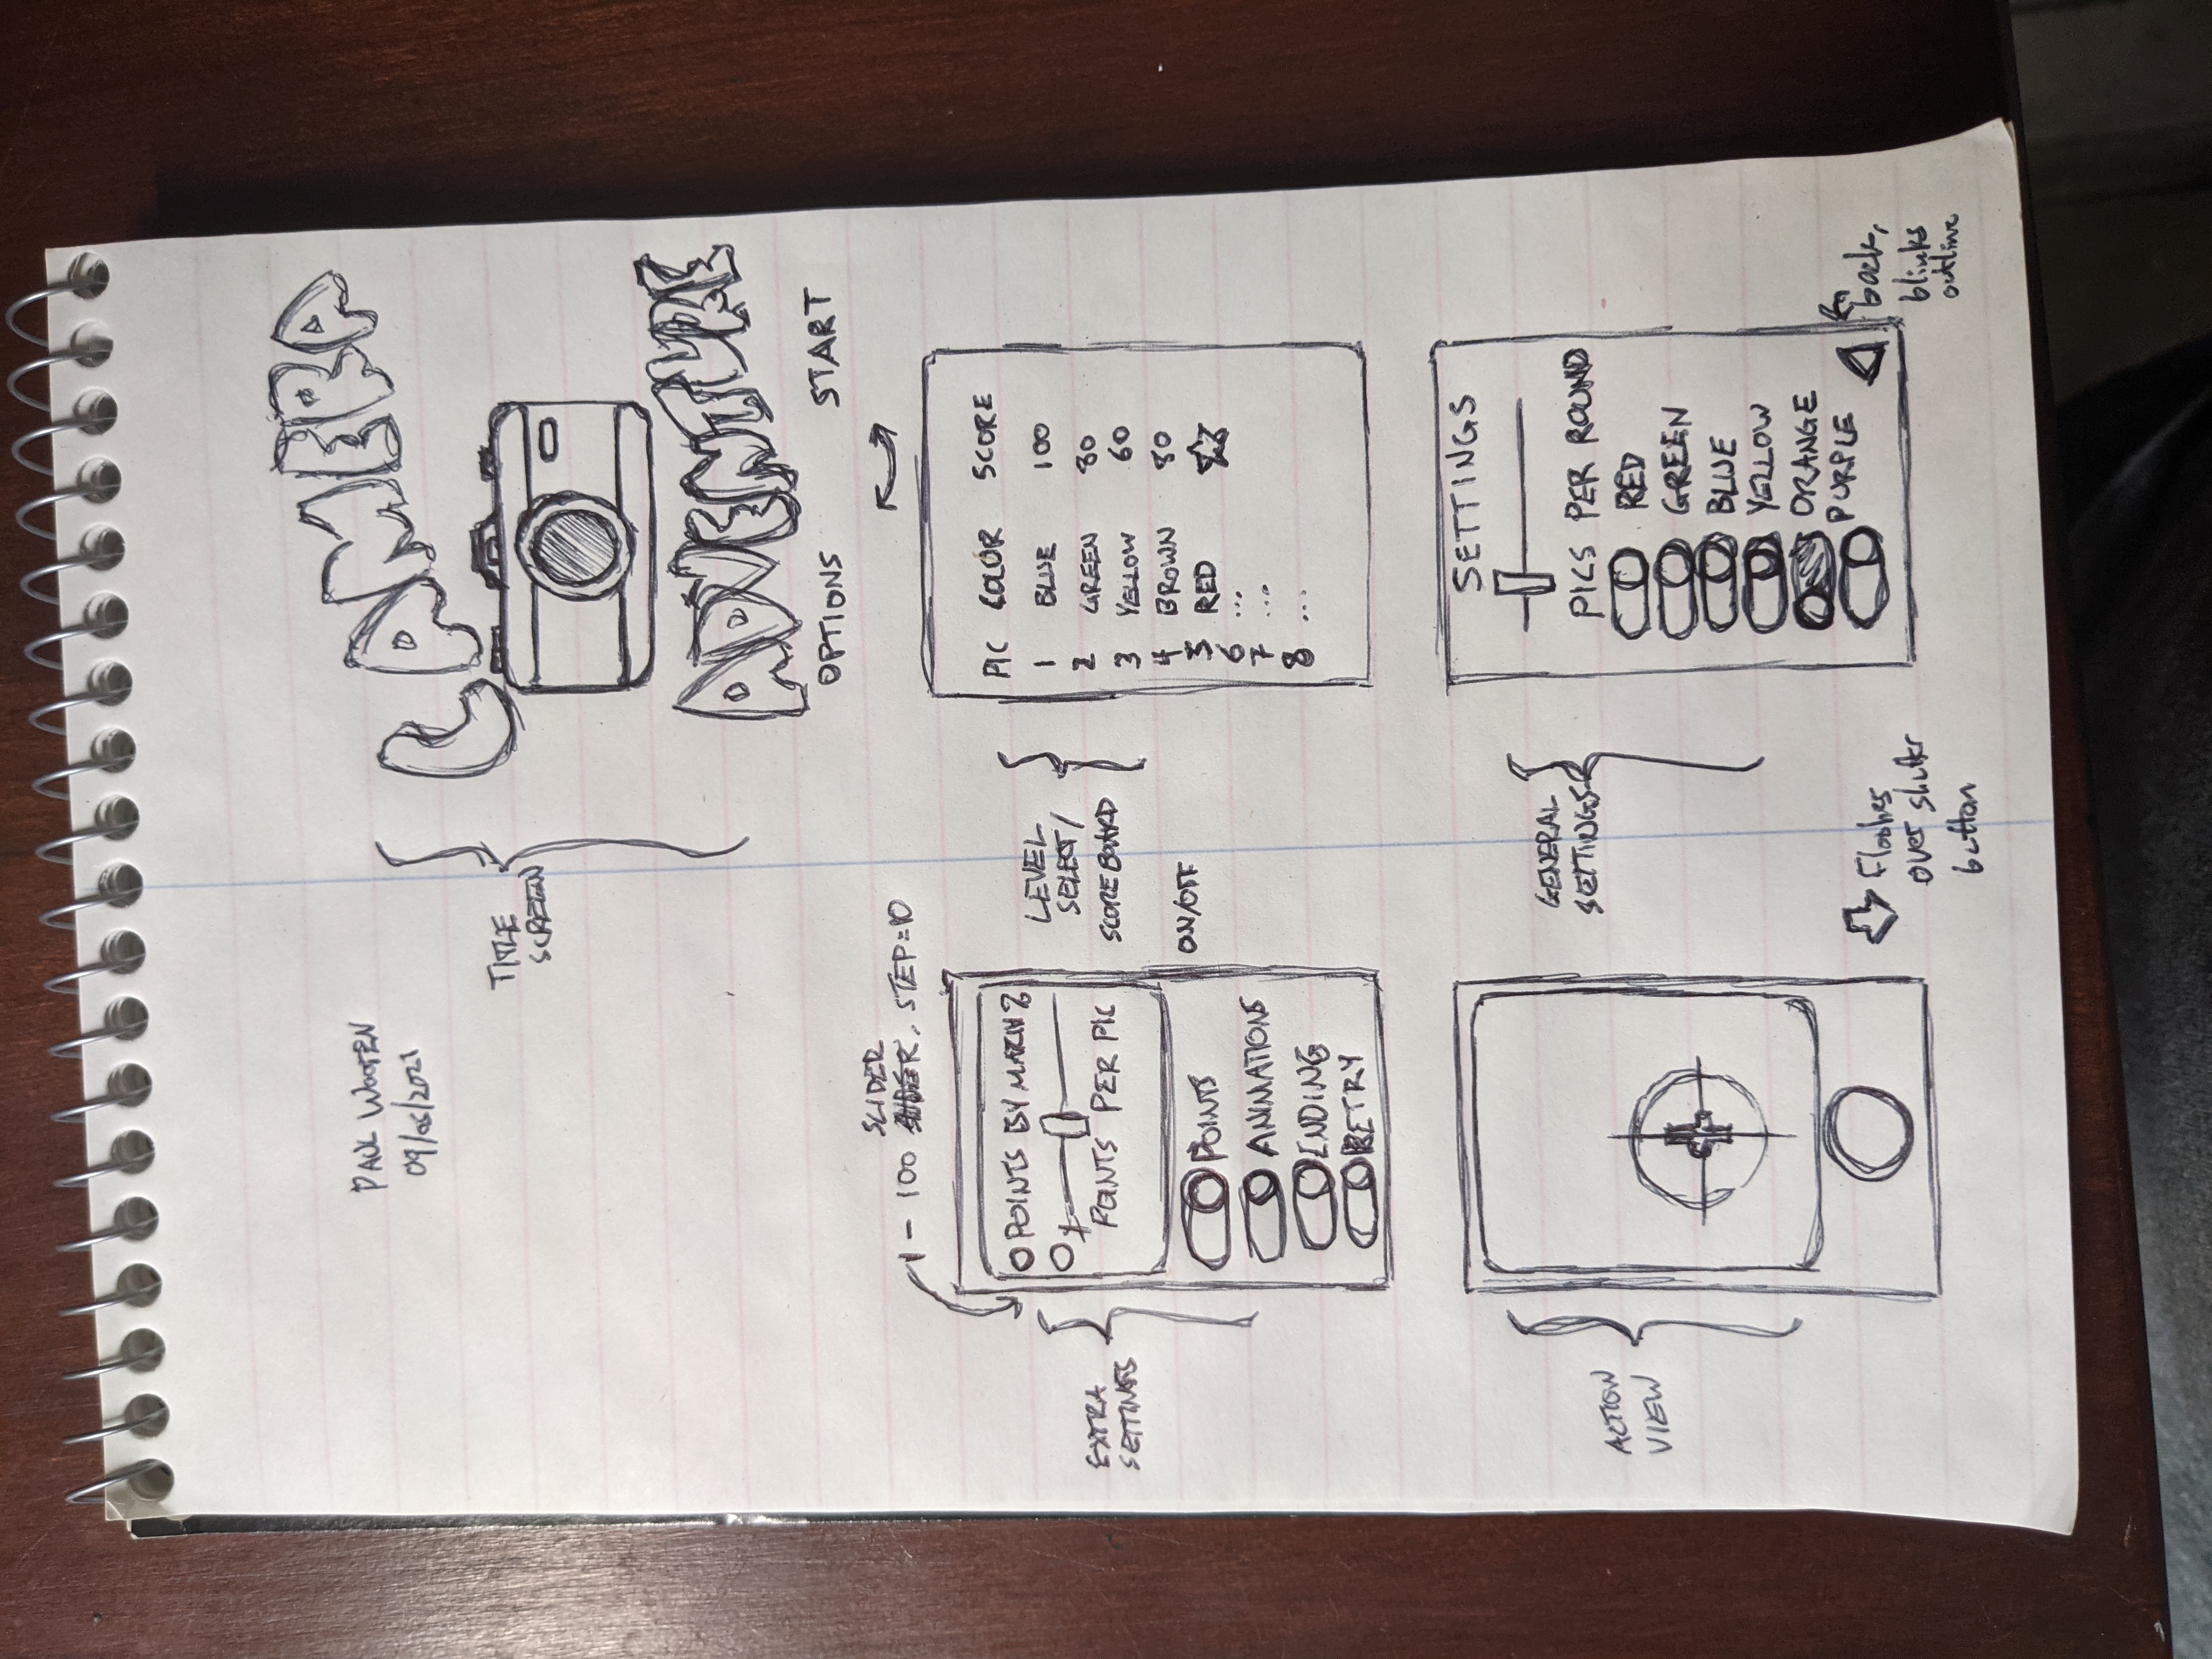 PAUL WOOTEN
09/05/2021
CAMERA
TITLE
SCREEN
ADVENTURE
OPTIONS START
SLIDER
1 - 100 , STEP=10
POINTS BY MATCH %
POINTS PER PIC
EXTRA
SETTINGS
ON/OFF
POINTS
ANIMATIONS
ENDING
RETRY
LEVEL
SELECT/
SCOREBOARD
PIC COLOR SCORE
1 BLUE 100
2 GREEN 80
3 YELLOW 60
4 BROWN 80
5 RED
6 ...
7 ...
8 ...
ACTION
VIEW
Flashes
over shutter
button
GENERAL
SETTINGS
SETTINGS
PICS PER ROUND
RED
GREEN
BLUE
YELLOW
ORANGE
PURPLE
back,
blinks
outline